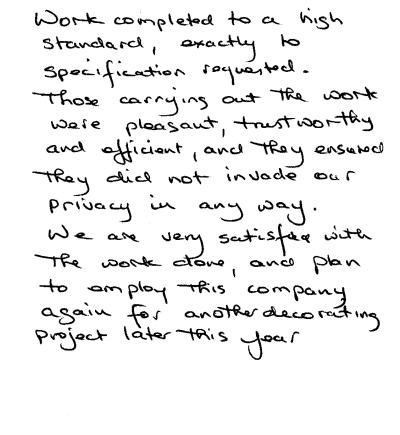 Work completed to a high
standard, exactly to
specification requested.
Those carrying out the work
were pleasant, trustworthy
and efficient, and they ensured
they did not invade our
privacy in any way.
We are very satisfied with
the work done, and plan
to employ this company
again for another decorating
project later this year